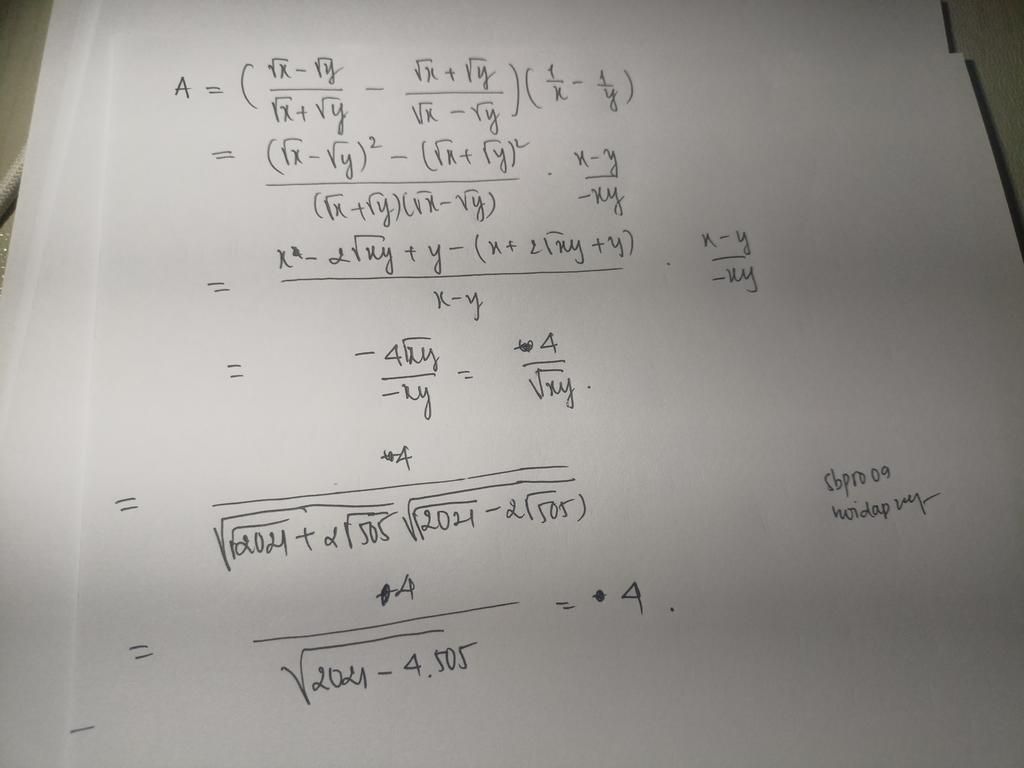 A = ( (√x - √y)/(√x + √y) - (√x + √y)/(√x - √y) ) ( 1/x - 1/y )
= ((√x - √y)² - (√x + √y)²)/((√x + √y)(√x - √y)) . (x - y)/(-xy)
= (x - 2√xy + y - (x + 2√xy + y))/(x - y) . (x - y)/(-xy)
= (-4√xy)/(-xy) = 4/√xy .
= 4/(√(√2021 + 2√505) √(√2021 - 2√505))
sbpro09
hoidapvy
= 4/√(2021 - 4.505) = 4 .